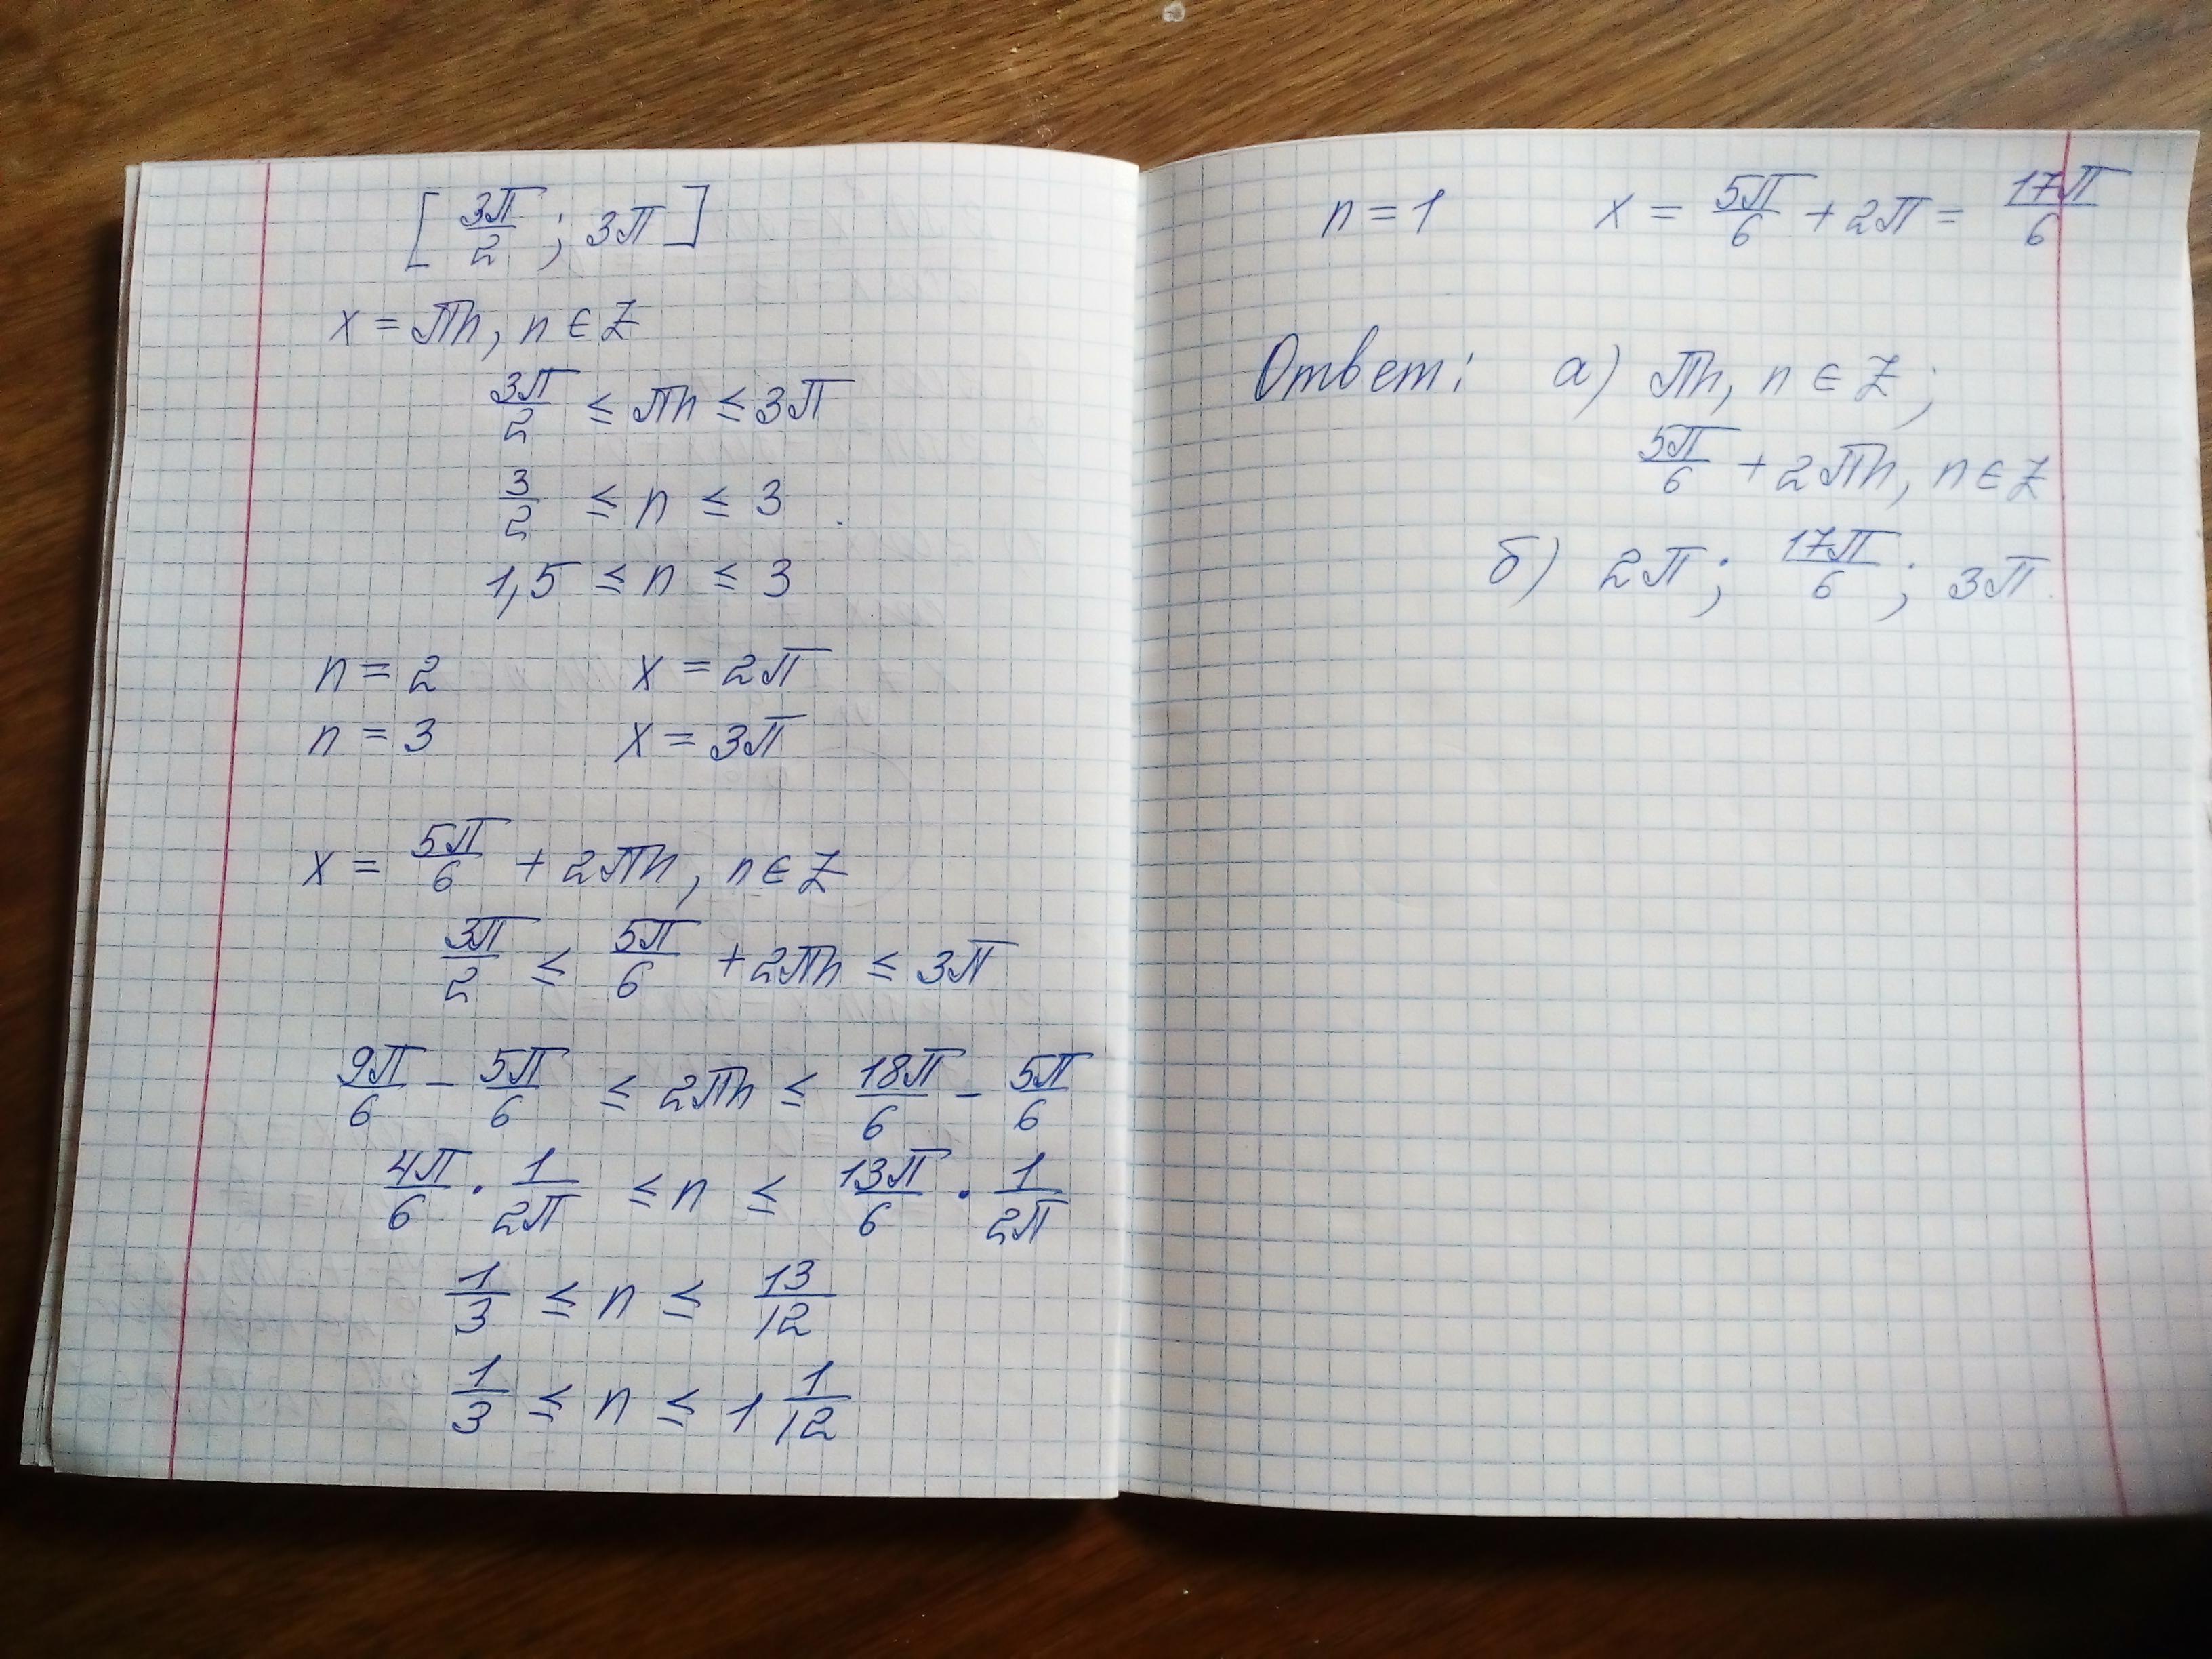 [3π/2; 3π]
x = πn, n ∈ Z
3π/2 ≤ πn ≤ 3π
3/2 ≤ n ≤ 3
1,5 ≤ n ≤ 3
n = 2 x = 2π
n = 3 x = 3π
x = 5π/6 + 2πn, n ∈ Z
3π/2 ≤ 5π/6 + 2πn ≤ 3π
9π/6 - 5π/6 ≤ 2πn ≤ 18π/6 - 5π/6
4π/6 · 1/2π ≤ n ≤ 13π/6 · 1/2π
1/3 ≤ n ≤ 13/12
1/3 ≤ n ≤ 1 1/12
n = 1 x = 5π/6 + 2π = 17π/6
Ответ: а) πn, n ∈ Z;
5π/6 + 2πn, n ∈ Z
б) 2π; 17π/6; 3π.